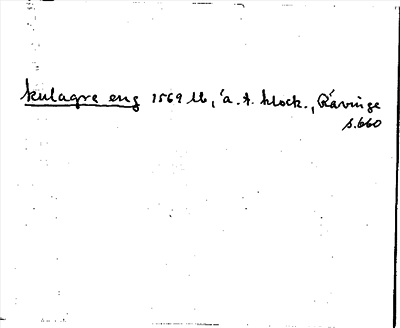 kulagre eng 1569 lb, 'a. t. klock., Rävinge
s. 660